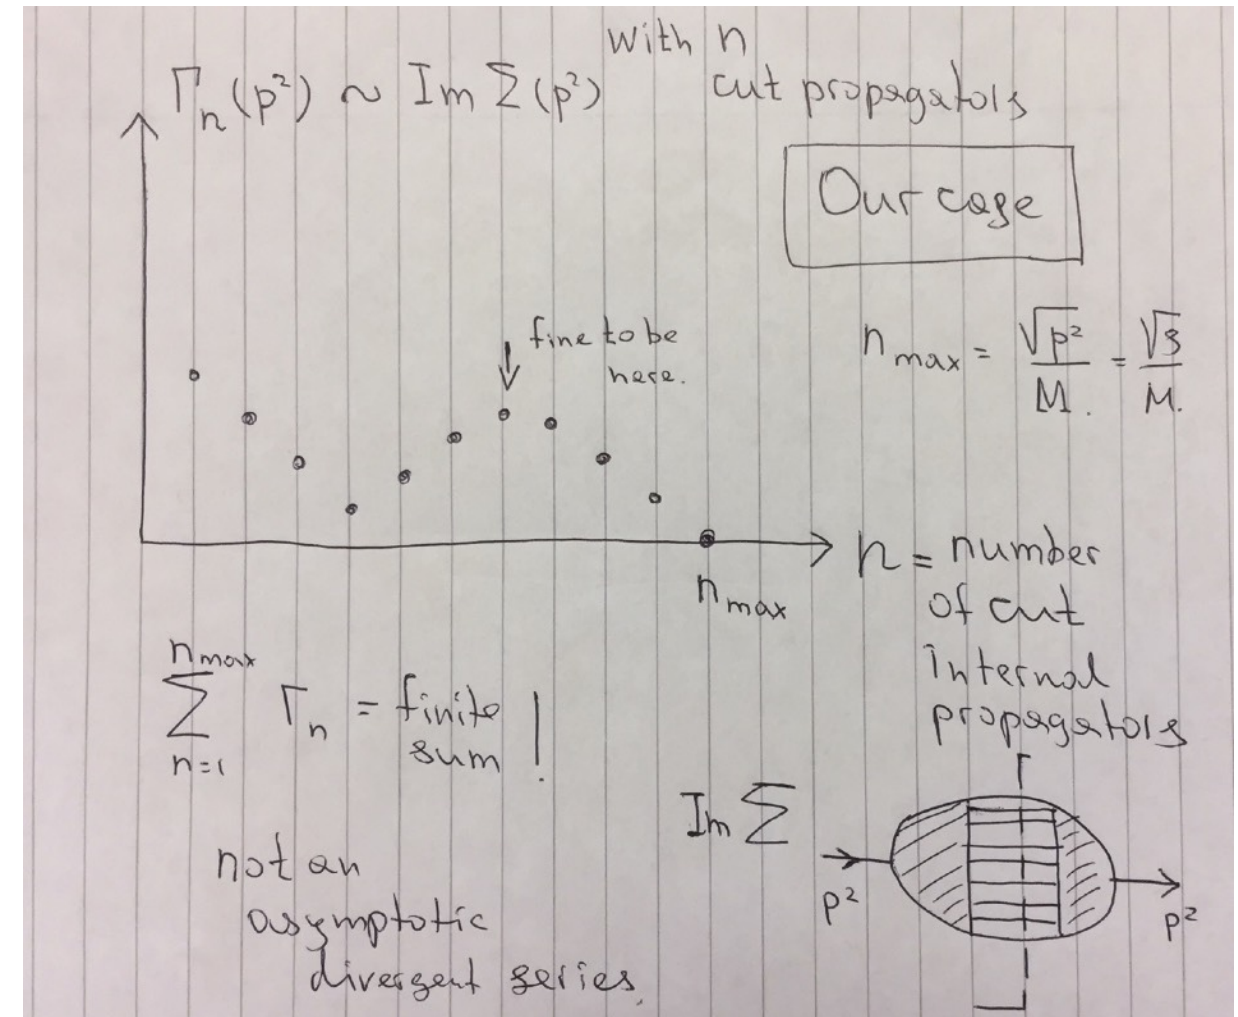 with n
Γₙ(p²) ~ Im Σ(p²) cut propagators
Our case
fine to be
here.
n max = √p² / M. = √s / M.
n max
n = number
of cut
internal
propagators
n max
Σ Γₙ = finite
sum !
n=1
Im Σ
p²
p²
not an
asymptotic
divergent series.